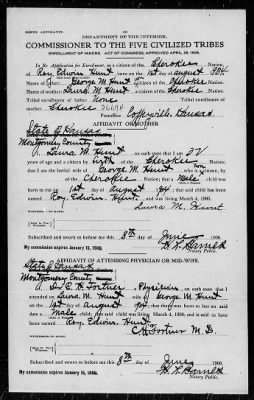 BIRTH AFFIDAVIT.
DEPARTMENT OF THE INTERIOR.
COMMISSIONER TO THE FIVE CIVILIZED TRIBES
ENROLLMENT OF MINORS. ACT OF CONGRESS, APPROVED APRIL 26, 1906.
In Re Application for Enrollment, as a citizen of the Cherokee Nation,
of Roy Edwin Hunt born on the 1st day of August 1904
Name of Father: George M Hunt a citizen of the Cherokee Nation.
Name of Mother: Laura M Hunt a citizen of the Cherokee Nation.
Tribal enrollment of father None Tribal enrollment of
mother Cherokee
Coffeyville, Kansas.
AFFIDAVIT OF MOTHER
State of Kansas
Montgomery County
I, Laura M Hunt on oath state that I am 32
years of age and a citizen by birth of the Cherokee Nation;
that I am the lawful wife of George M Hunt who is a citizen, by
of the Cherokee Nation; that a Male child was
born to me on 1st day of August 1904; that said child has been
named Roy Edwin Hunt, and was living March 4, 1906.
Laura M Hunt
Subscribed and sworn to before me this 8th day of June 1906.
My commission expires January 15, 1908.
Notary Public.
AFFIDAVIT OF ATTENDING PHYSICIAN OR MID-WIFE.
State of Kansas
Montgomery County
I, C H Fortner, Physician, on oath state that I
attended on Laura M Hunt wife of George M Hunt
on the 1st day of August 1904; that there was born to her on said
date a Male child; that said child was living March 4, 1906, and is said to
have been named Roy Edwin Hunt
C H Fortner M.D.
Subscribed and sworn to before me this 8th day of June 1906.
My commission expires January 15, 1908.
Notary Public.